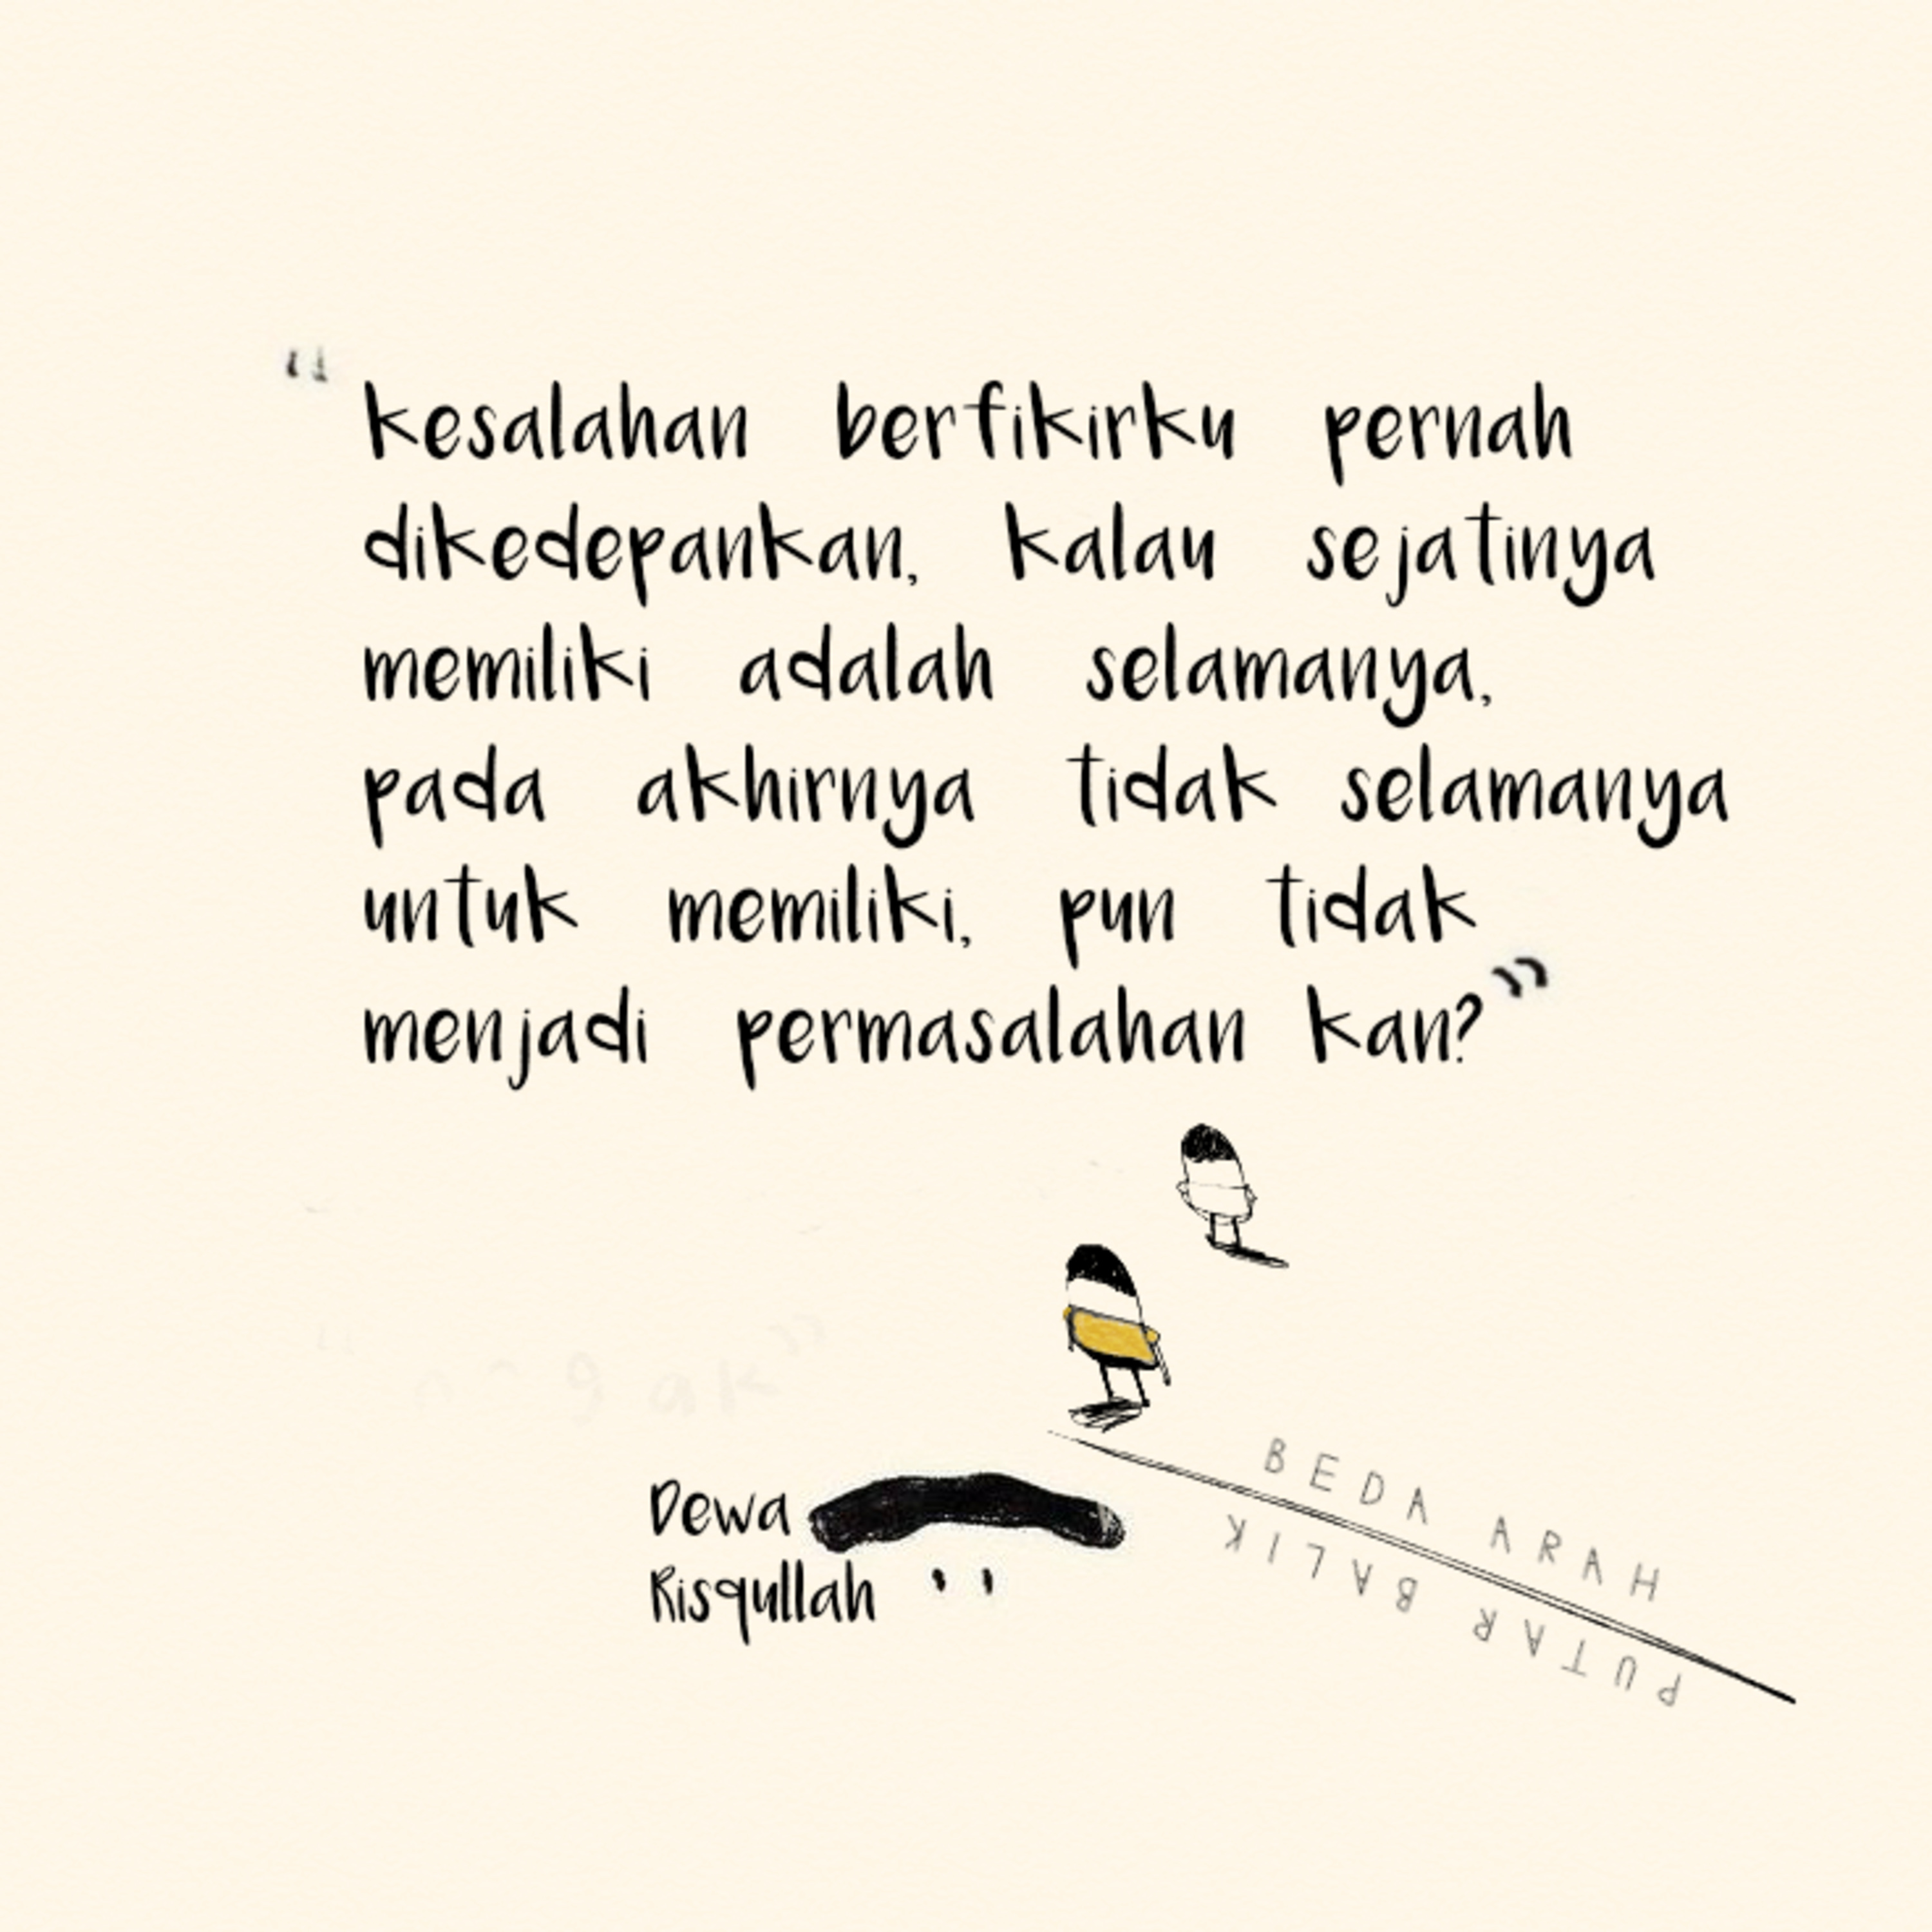 “kesalahan berfikirku pernah
dikedepankan, kalau sejatinya
memiliki adalah selamanya,
pada akhirnya tidak selamanya
untuk memiliki, pun tidak
menjadi permasalahan kan?”
Dewa
Risqullah
BEDA ARAH
PUTAR BALIK